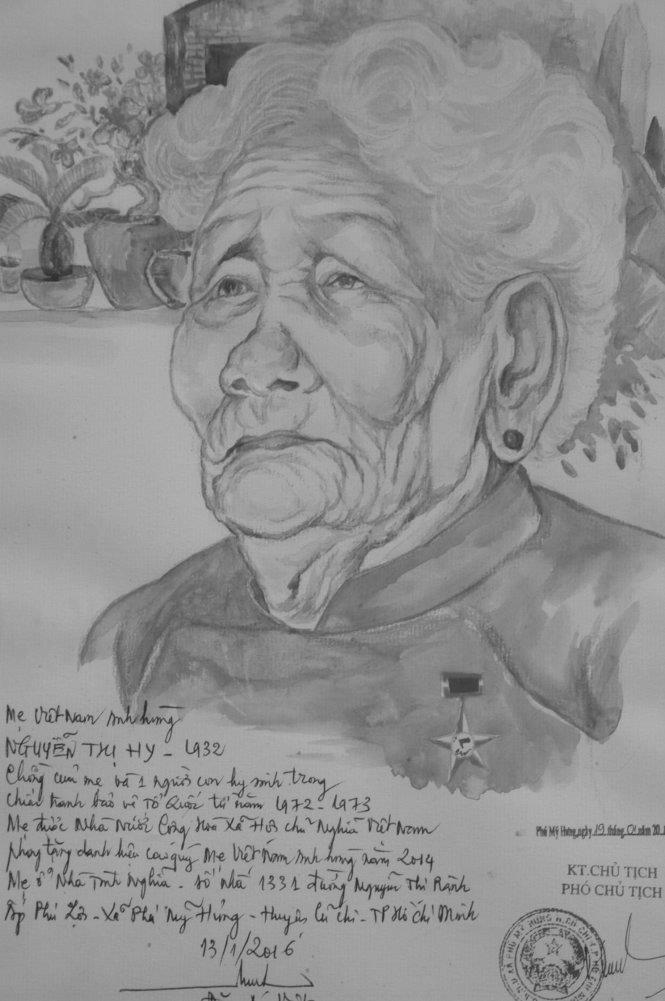 Mẹ Việt Nam anh hùng
NGUYỄN THỊ HY - 1932
Chồng của mẹ và 1 người con hy sinh trong
chiến tranh bảo vệ Tổ Quốc từ năm 1972-1973
Mẹ được Nhà Nước Cộng Hoà Xã Hội chủ Nghĩa Việt Nam
phong tặng danh hiệu cao quý Mẹ Việt Nam anh hùng năm 2014
Mẹ ở Nhà Tình Nghĩa - Số nhà 1331 đường Nguyễn Thị Rành
Ấp Phú Lợi - Xã Phú Mỹ Hưng - Huyện Củ Chi - TP Hồ Chí Minh
13/1/2016
Phú Mỹ Hưng, ngày 19 tháng 01 năm 20
KT.CHỦ TỊCH
PHÓ CHỦ TỊCH